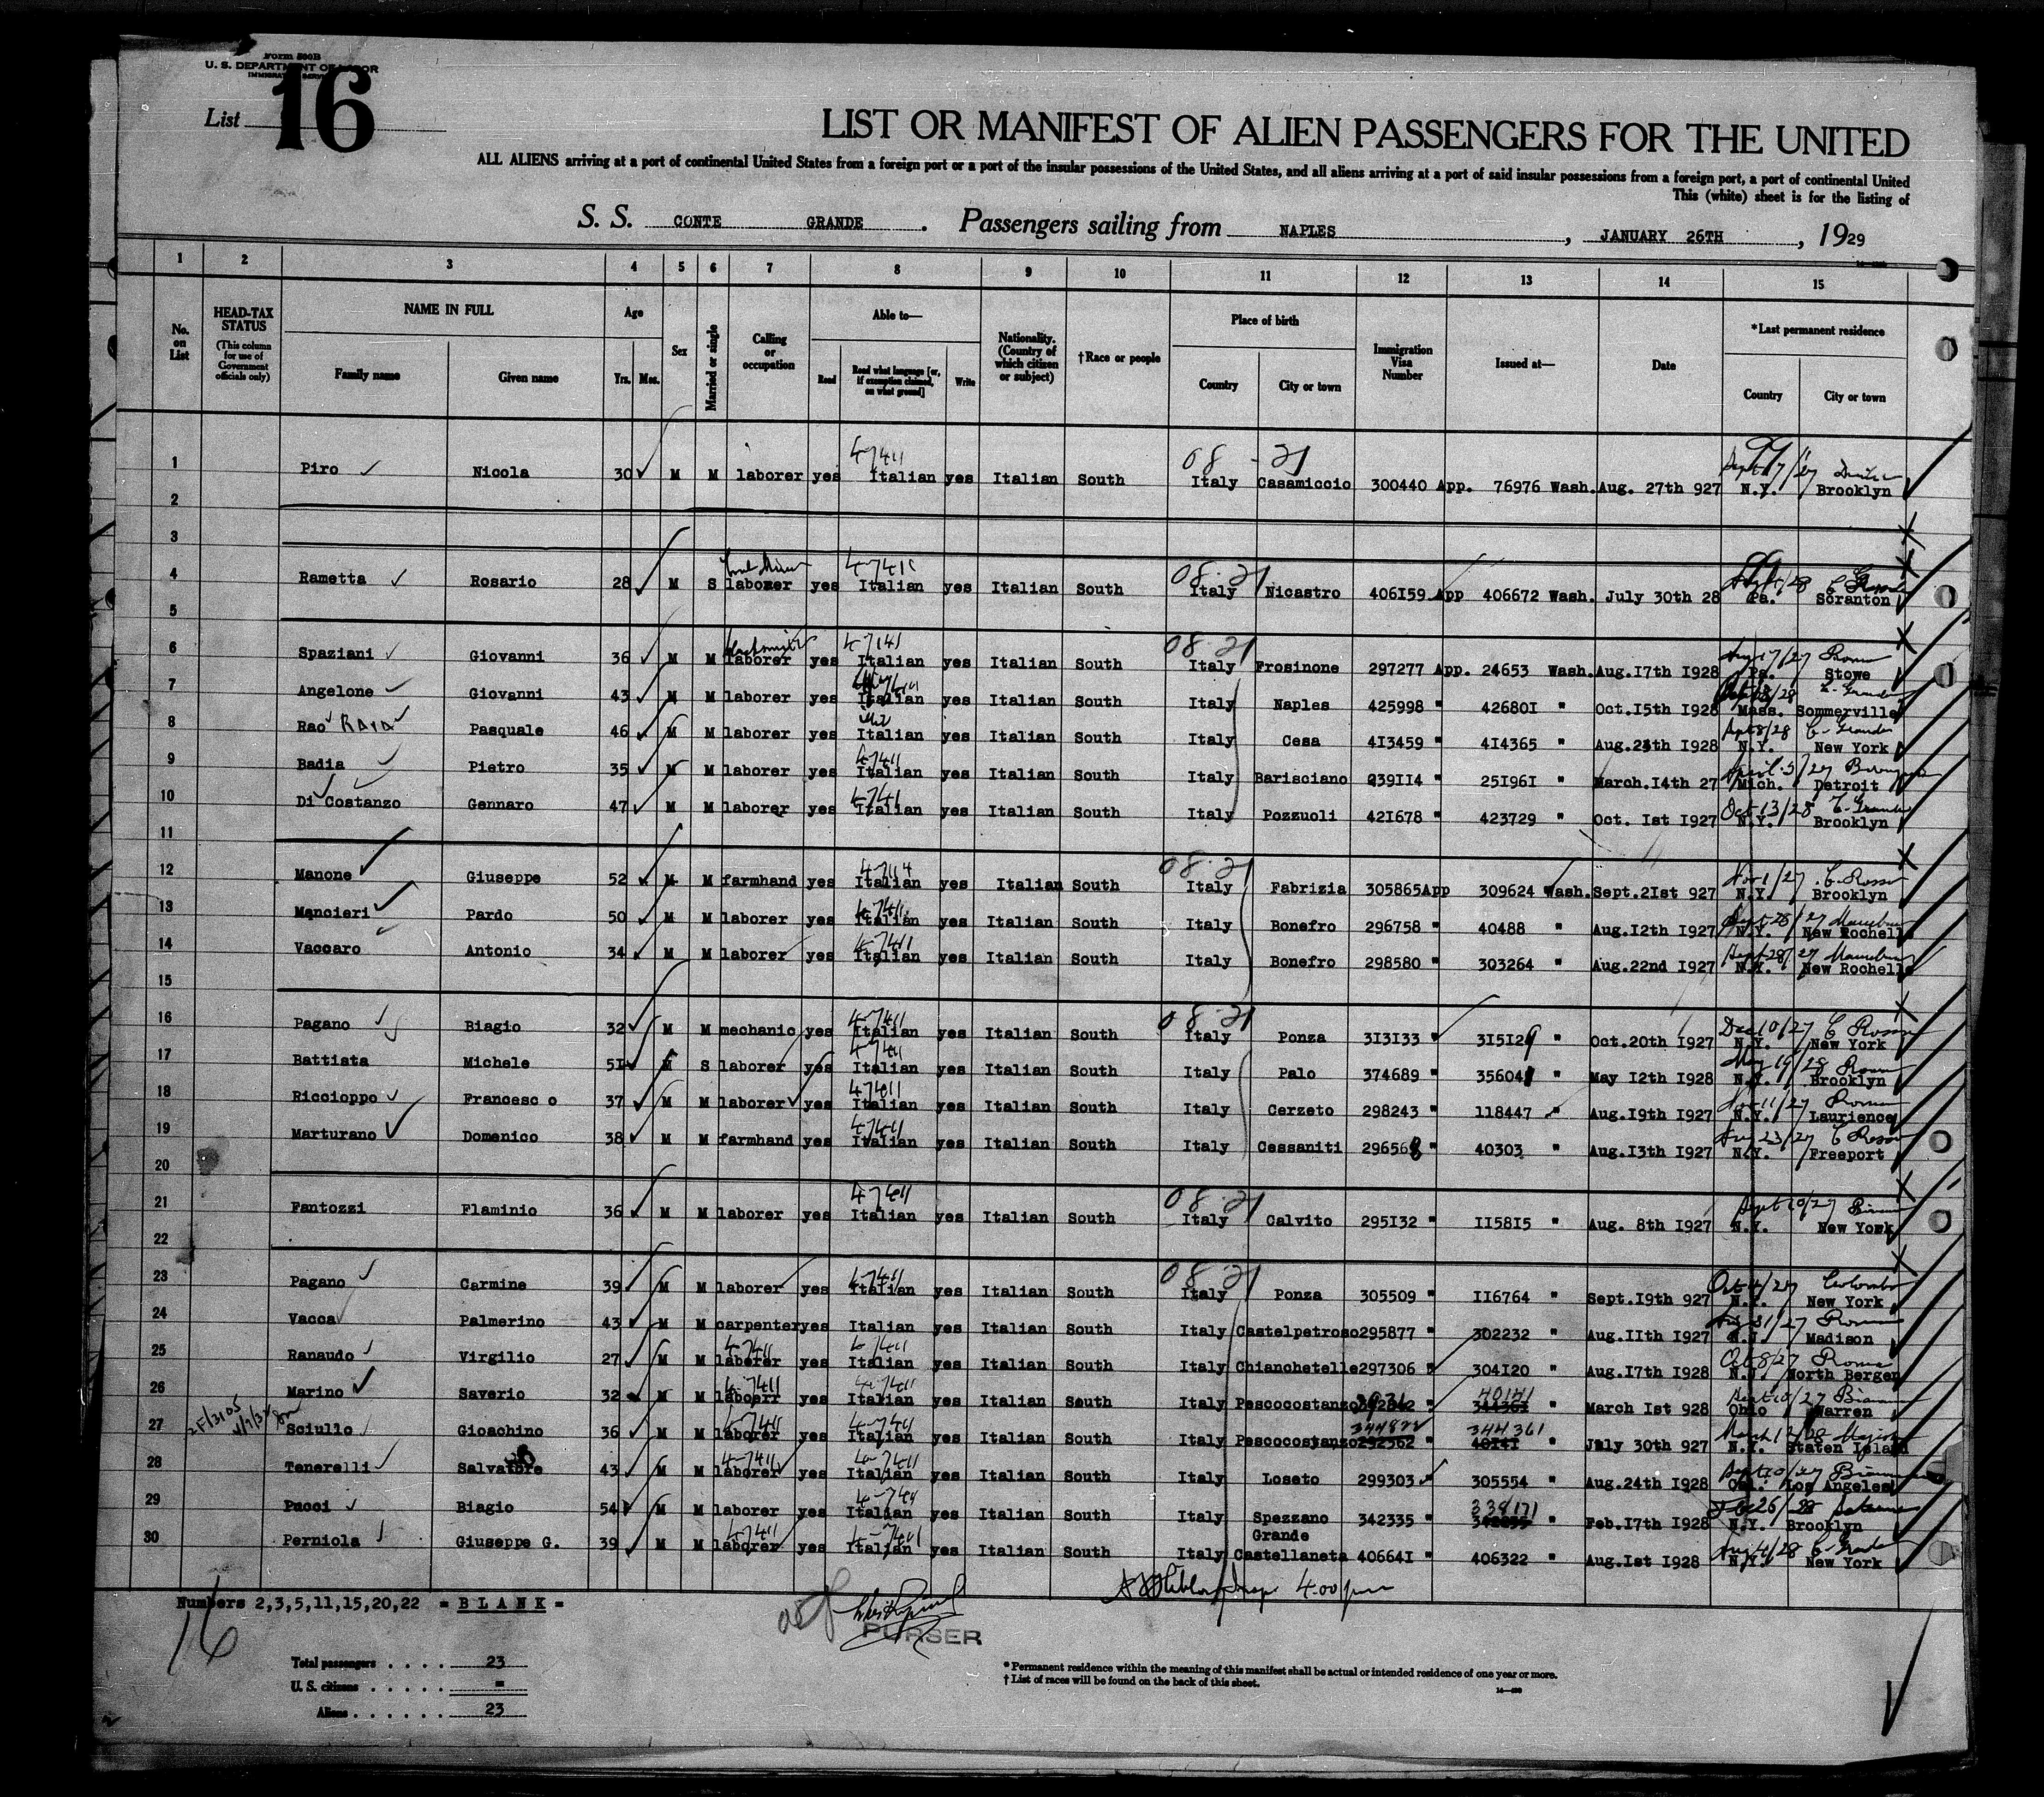 Form 500B
U. S. DEPARTMENT OF LABOR
IMMIGRATION SERVICE
List 16
LIST OR MANIFEST OF ALIEN PASSENGERS FOR THE UNITED
ALL ALIENS arriving at a port of continental United States from a foreign port or a port of the insular possessions of the United States, and all aliens arriving at a port of said insular possessions from a foreign port, a port of continental United
This (white) sheet is for the listing of
S. S. CONTE GRANDE . Passengers sailing from NAPLES , JANUARY 26TH , 1929
1 2 3 4 5 6 7 8 9 10 11 12 13 14 15
No. on List
HEAD-TAX STATUS (This column for use of Government officials only)
NAME IN FULL Family name Given name
Age Yrs. Mos.
Sex
Married or single
Calling or occupation
Able to— Read Read what language [or, if exemption claimed, on what ground] Write
Nationality. (Country of which citizen or subject)
†Race or people
Place of birth Country City or town
Immigration Visa Number
Issued at—
Date
*Last permanent residence Country City or town
08 - 21
1 Piro Nicola 30 M M laborer yes Italian yes Italian South Italy Casamiccio 300440 App. 76976 Wash. Aug. 27th 927 N.Y. Brooklyn
2
3
08.21
4 Rametta Rosario 28 M S laborer yes Italian yes Italian South Italy Nicastro 406I59 App 406672 Wash. July 30th 28 Pa. Scranton
5
08.21
6 Spaziani Giovanni 36 M M laborer yes Italian yes Italian South Italy Frosinone 297277 App. 24653 Wash. Aug.I7th I928 Pa. Stowe
7 Angelone Giovanni 43 M M laborer yes Italian yes Italian South Italy Naples 425998 " 42680I " Oct.I5th I928 Mass. Sommerville
8 Rao RAIA Pasquale 46 M M laborer yes Italian yes Italian South Italy Cesa 4I3459 " 4I4365 " Aug.28th I928 N.Y. New York
9 Badia Pietro 35 M M laborer yes Italian yes Italian South Italy Barisciano 239II4 " 25I96I " March.I4th 27 Mich. Detroit
10 Di Costanzo Gennaro 47 M M laborer yes Italian yes Italian South Italy Pozzuoli 42I678 " 423729 " Oct. Ist I927 N.Y. Brooklyn
11
08.21
12 Manone Giuseppe 52 M M farmhand yes Italian yes Italian South Italy Fabrizia 305865App 309624 Wash. Sept.2Ist 927 N.Y. Brooklyn
13 Mancieri Pardo 50 M M laborer yes Italian yes Italian South Italy Bonefro 296758 " 40488 " Aug.I2th I927 N.Y. New Rochell
14 Vaccaro Antonio 34 M M laborer yes Italian yes Italian South Italy Bonefro 298580 " 303264 " Aug.22nd I927 N.Y. New Rochell
15
08.21
16 Pagano Biagio 32 M M mechanic yes Italian yes Italian South Italy Ponza 3I3I33 " 3I5I2 " Oct.20th I927 N.Y. New York
17 Battista Michele 5I M S laborer yes Italian yes Italian South Italy Palo 374689 " 35604 " May I2th I928 N.Y. Brooklyn
18 Riccioppo Francesc o 37 M M laborer yes Italian yes Italian South Italy Cerzeto 298243 " II8447 " Aug.I9th I927 N.Y. Laurience
19 Marturano Domenico 38 M M farmhand yes Italian yes Italian South Italy Cessaniti 296568 " 40303 " Aug.I3th I927 N.Y. Freeport
20
08.21
21 Fantozzi Flaminio 36 M M laborer yes Italian yes Italian South Italy Calvito 295I32 " II58I5 " Aug. 8th I927 N.Y. New York
22
08.21
23 Pagano Carmine 39 M M laborer yes Italian yes Italian South Italy Ponza 305509 " II6764 " Sept.I9th 927 N.Y. New York
24 Vacca Palmerino 43 M M carpenter yes Italian yes Italian South Italy Castelpetroso 295877 " 302232 " Aug.IIth I927 N.J. Madison
25 Ranaudo Virgilio 27 M M laborer yes Italian yes Italian South Italy Chianchetelle 297306 " 304I20 " Aug.I7th I928 N.J. North Bergen
26 Marino Saverio 32 M M laboerr yes Italian yes Italian South Italy Pescocostanzo " 40141 " March Ist 928 Ohio Warren
27 Sciullo Gioachino 36 M M laborer yes Italian yes Italian South Italy Pescocostanzo 292362 " 344361 " July 30th 927 N.Y. Staten Island
28 Tenerelli Salvatore 43 M M laborer yes Italian yes Italian South Italy Loseto 299303 " 305554 " Aug.24th I928 Cal. Los Angeles
29 Pucci Biagio 54 M M laborer yes Italian yes Italian South Italy Spezzano Grande 342335 " 338171 " Feb.I7th I928 N.Y. Brooklyn
30 Perniola Giuseppe G. 39 M M laborer yes Italian yes Italian South Italy Castellaneta 40664I " 406322 " Aug.Ist I928 N.Y. New York
Numbers 2,3,5,11,15,20,22 = B L A N K =
4:00 pm
PURSER
16
Total passengers . . . . 23
U. S. citizens . . . . . =
Aliens . . . . . . 23
* Permanent residence within the meaning of this manifest shall be actual or intended residence of one year or more.
† List of races will be found on the back of this sheet.